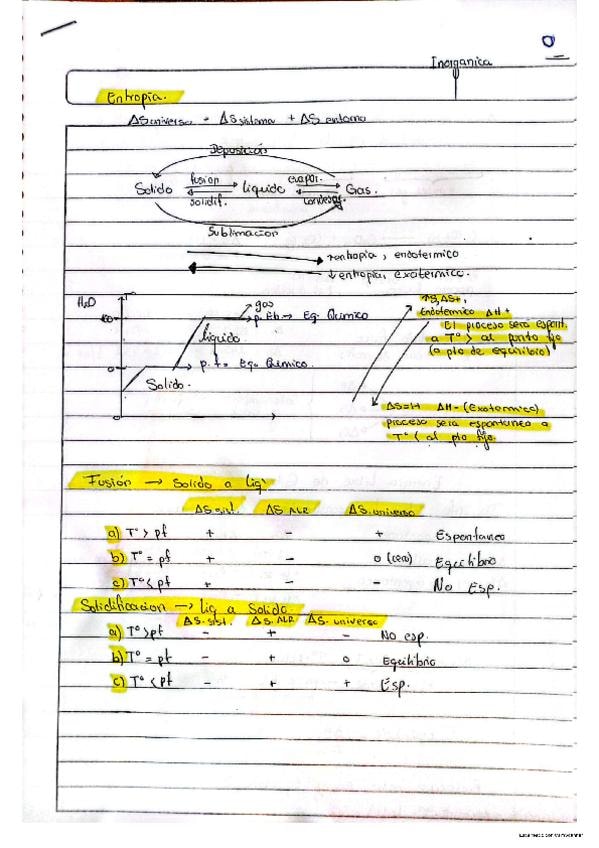 Inorganica
Entropia.
ΔS universo = ΔS sistema + ΔS entorno
Deposición
Solido fusion liquido evapor. Gas.
solidif. condensac.
Sublimacion
↑entropia, endotermico
↓ entropia, exotermico.
H₂O T°
gas
100 p. Eb. → Eq. Químico
liquido
0 p. f → Eq. Químico.
Solido.
↑S, ΔS+,
Endotermico ΔH +
El proceso será espont.
a T° > al punto fijo
(a pto de equilibrio)
ΔH- (Exotermico)
proceso sera espontaneo a
T° < al pto fijo.
Fusión → Solido a liq.
ΔS sist. ΔS ALR ΔS. universo
a) T° > pf + - + Espontaneo
b) T° = pf + - 0 (cero) Equilibrio
c) T° < pf + - - No Esp.
Solidificacion → liq a Solido.
ΔS. sist. ΔS. ALR ΔS. universo
a) T° > pf - + - No esp.
b) T° = pf - + 0 Equilibrio
c) T° < pf - + + Esp.